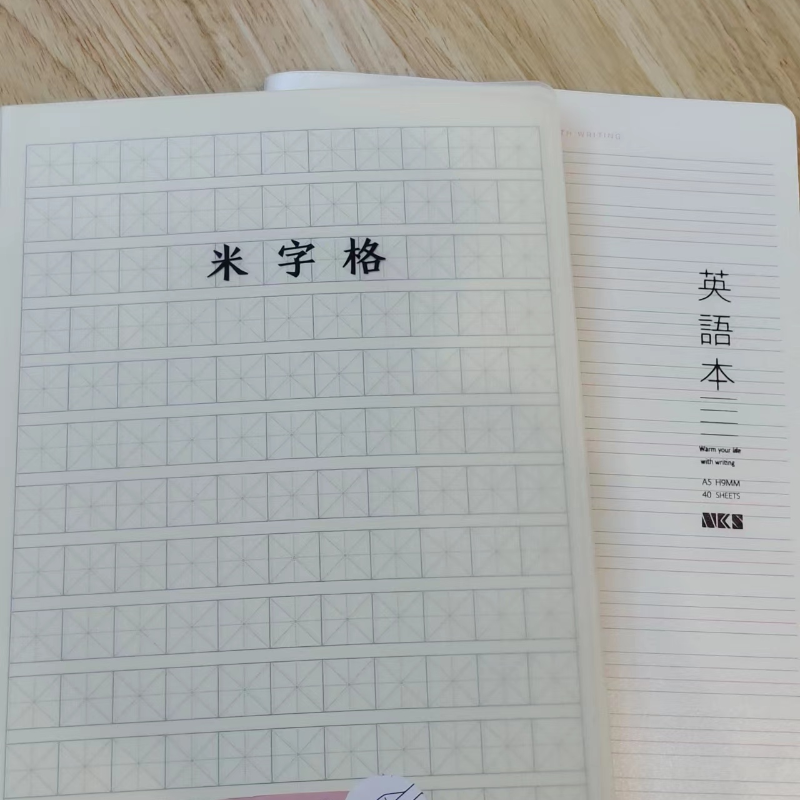 米字格
TH WRITING
英語本
Warm your life
with writing
A5 H9MM
40 SHEETS
NKS